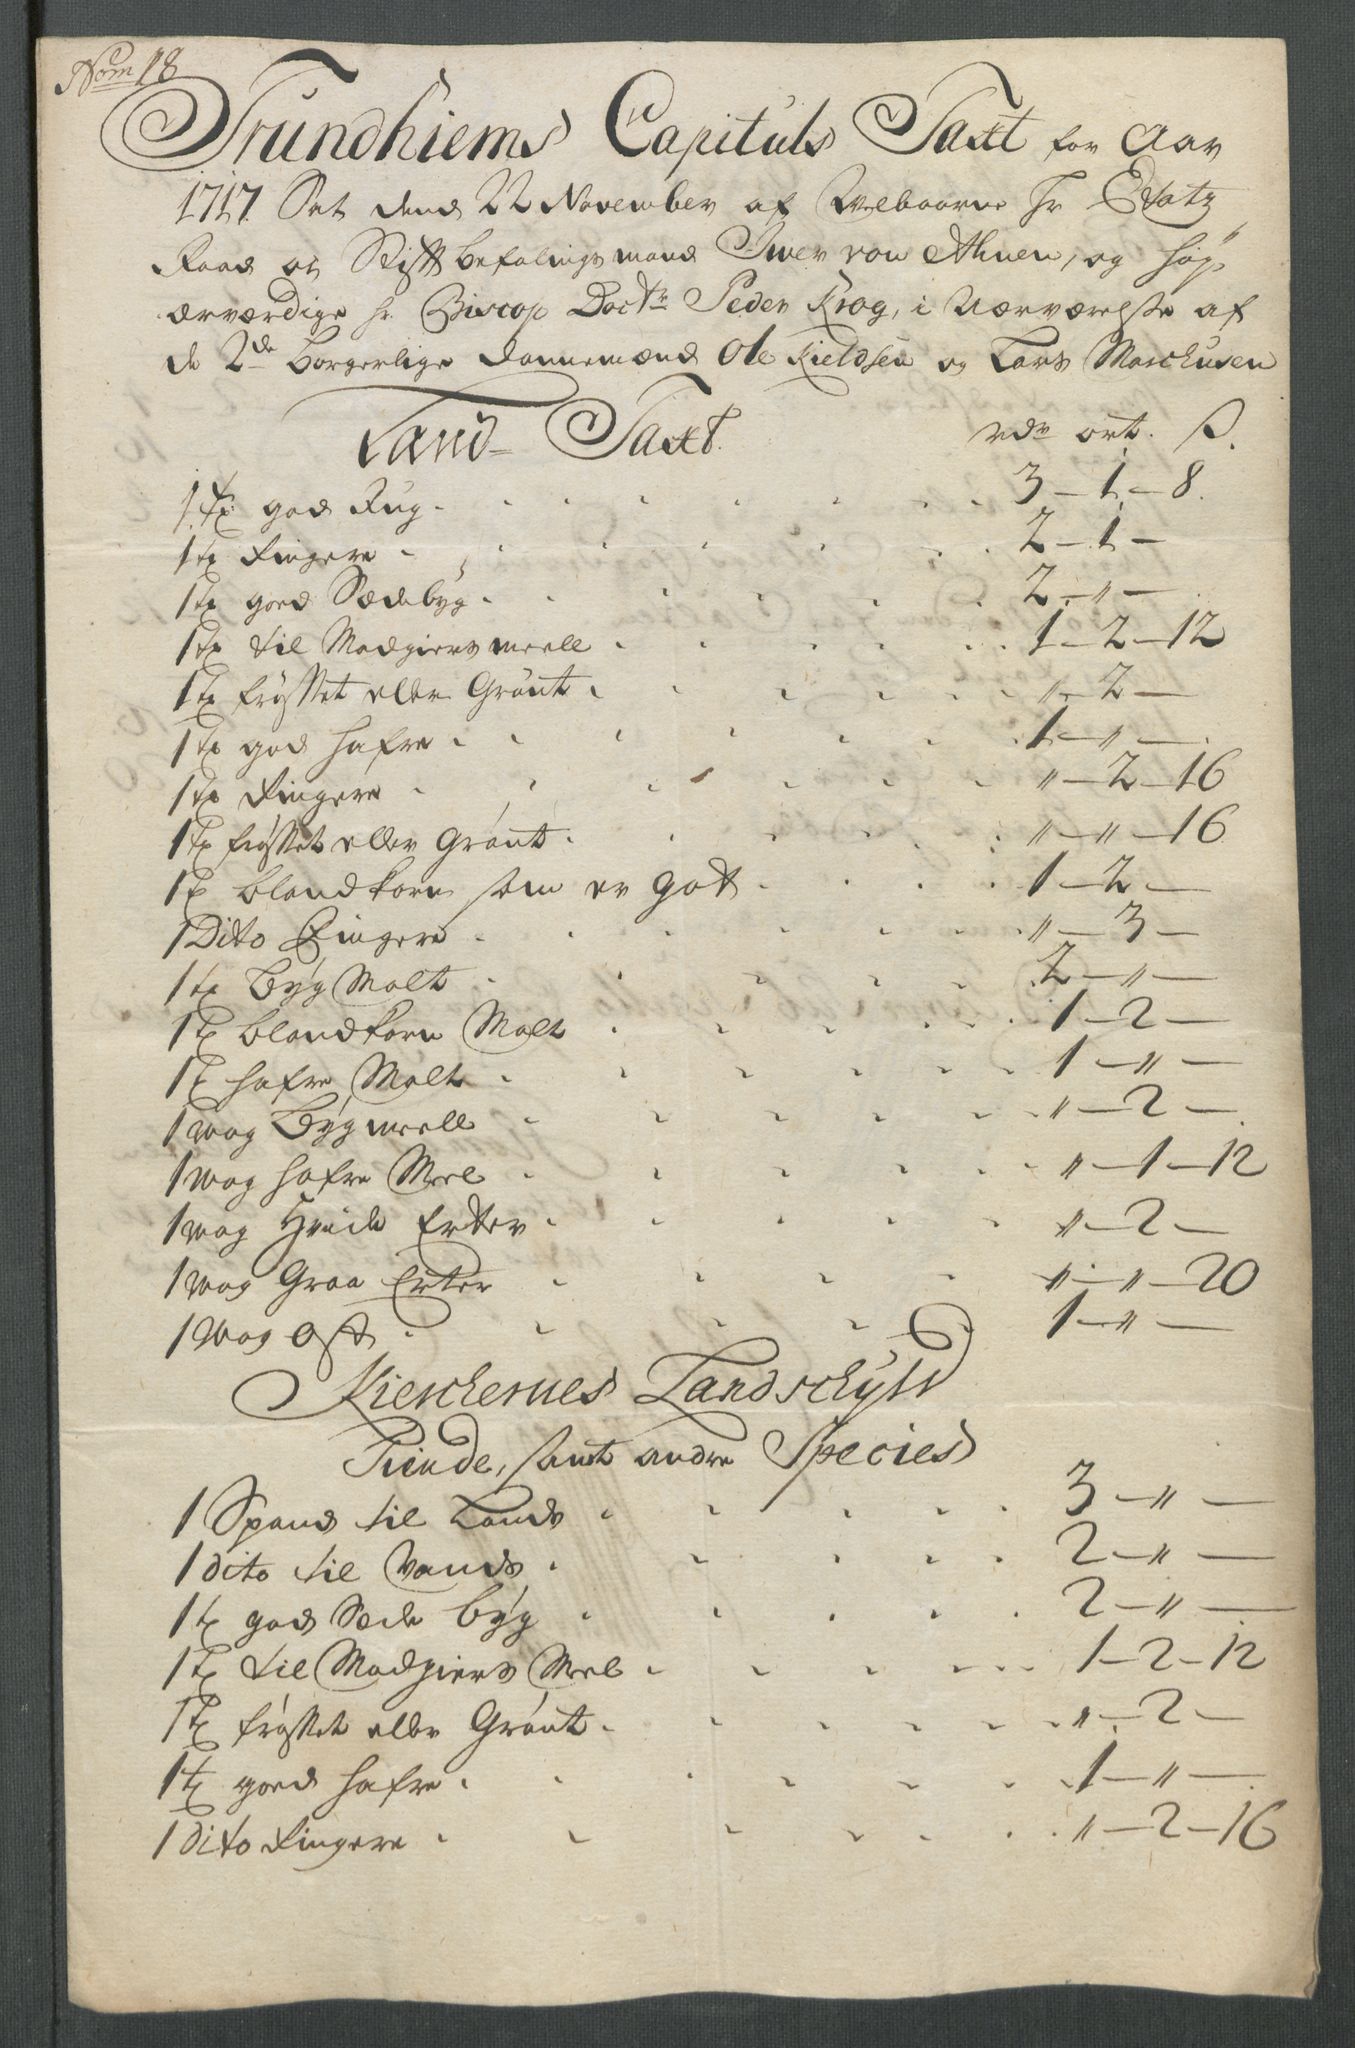 Nom 18
Trundhiems Capituls Taxt for Aar
1717 Sat dend 22 November af Welbaarne Hr Etatz
Raad og Stiftbefalingsmand Iwer von Ahnen, og Høy-
ærværdige hr. Biscop Doctr Peder Krog, i Nærværelse af
de 2de borgerlige dannemænd Ole Kieldsen og Lars Marchusen
Land-Taxt. rdr ort. ß.
1 tø: god Rug 3-1-8.
1 tø Ringere 2-1-
1 tø goed Sædebyg 2-"-
1 tø til Madgiers meell 1-2-12
1 tø frosset eller Grønt "-2-
1 tø god hafre 1-"-
1 tø Ringere "-2-16
1 tø frosset eller Grønt "-"-16
1 tø blandkorn som er got 1-2-
1 Dito Ringere "-3-
1 tø Byg Malt 2-"-
1 tø blandkorn Malt 1-2-
1 tø hafre Malt 1-"-
1 wog Byg meell "-2-
1 wog hafre Meel "-1-12
1 wog Hvide Erter "-2-
1 wog Graa Erter "-"-20
1 Wog Ost 1-"-
Kierchernes Landschyld
Tiende, samt andre Species
1 Spand til Lands 3-"-
1 dito til Vands 2-"-
1 tø god Sæde byg 2-"-
1 tø til Madgiers Meel 1-2-12
1 tø frosset eller Grønt "-2-
1 tø goed hafre 1-"-
1 Dito Ringere "-2-16